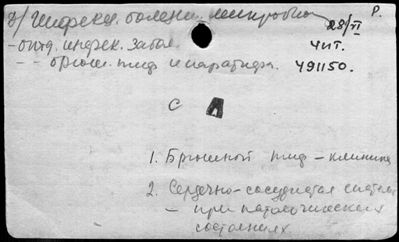 Д/ Инфекц. болезни, микробиол. Р.
28/XI
- отд. инфек. забол. Чит.
- - брюш. тиф и паратифы. 491150.
С А
1. Брюшной тиф – клиника
2. Сердечно-сосудистая система
– при патологических
состояниях